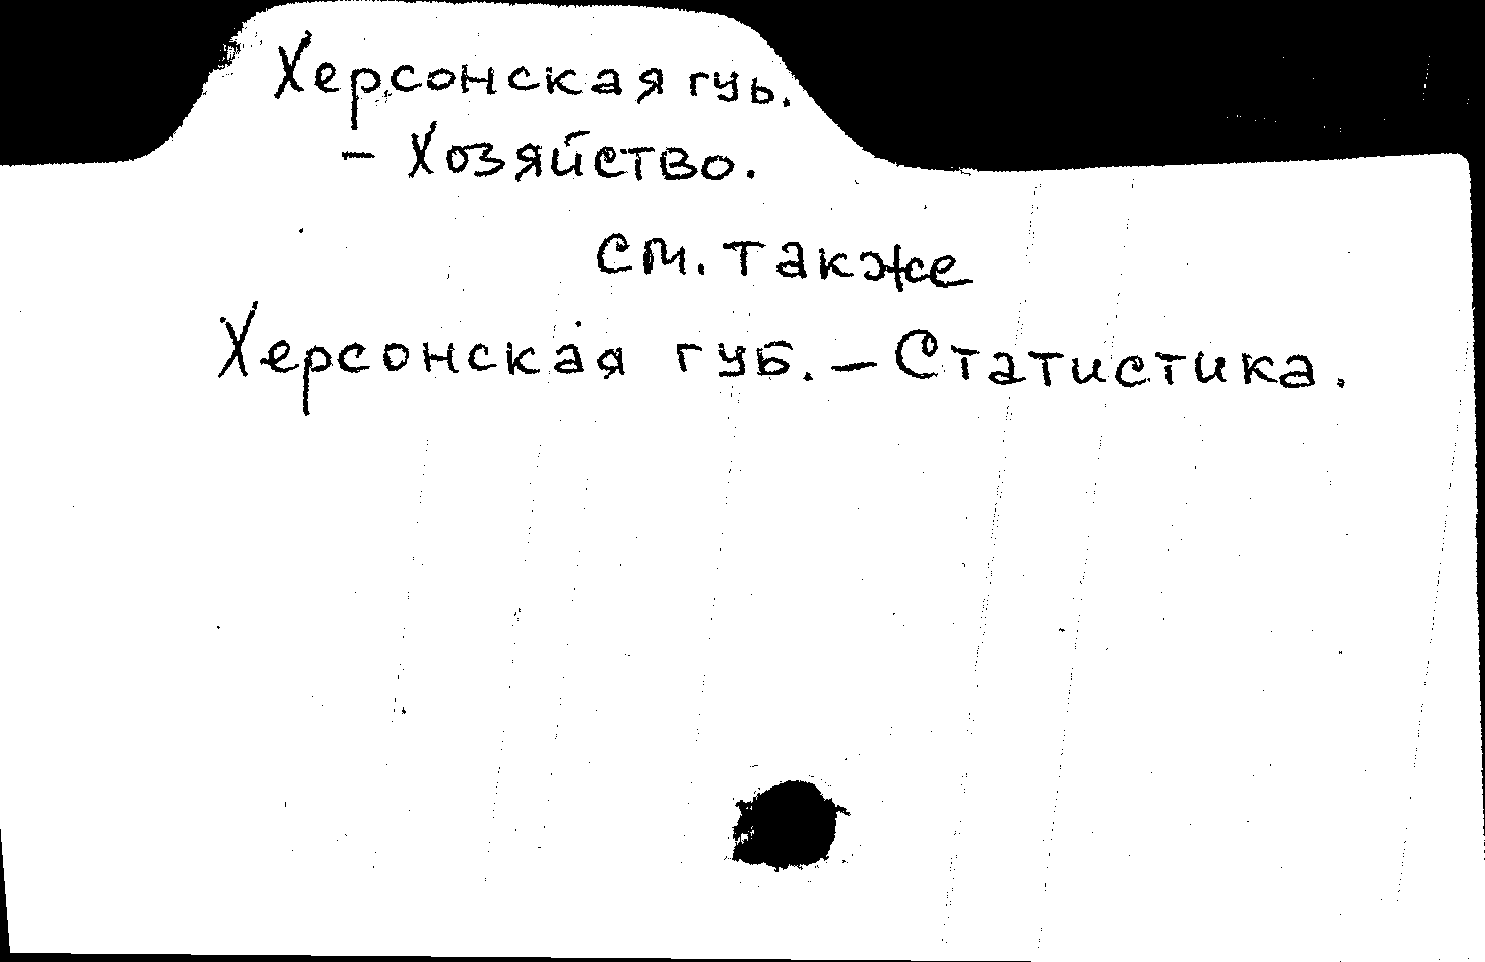 Херсонская губ.
- Хозяйство.
см. также
Херсонская губ. - Статистика.